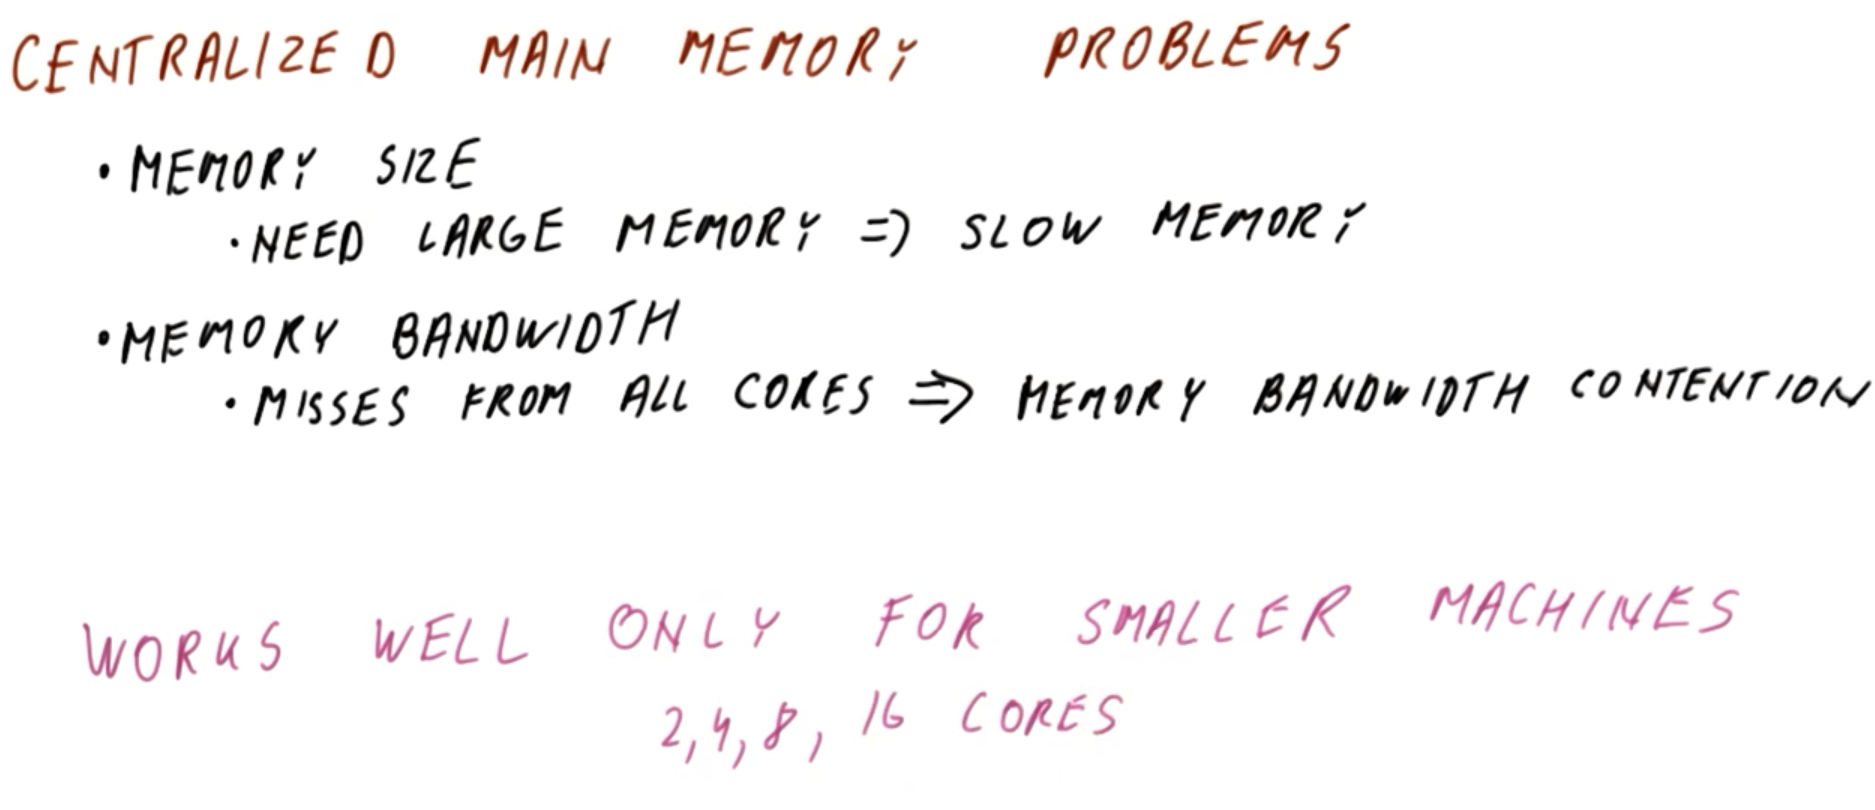 CENTRALIZED MAIN MEMORY PROBLEMS
• MEMORY SIZE
• NEED LARGE MEMORY => SLOW MEMORY
• MEMORY BANDWIDTH
• MISSES FROM ALL CORES => MEMORY BANDWIDTH CONTENTION
WORKS WELL ONLY FOR SMALLER MACHINES
2, 4, 8, 16 CORES